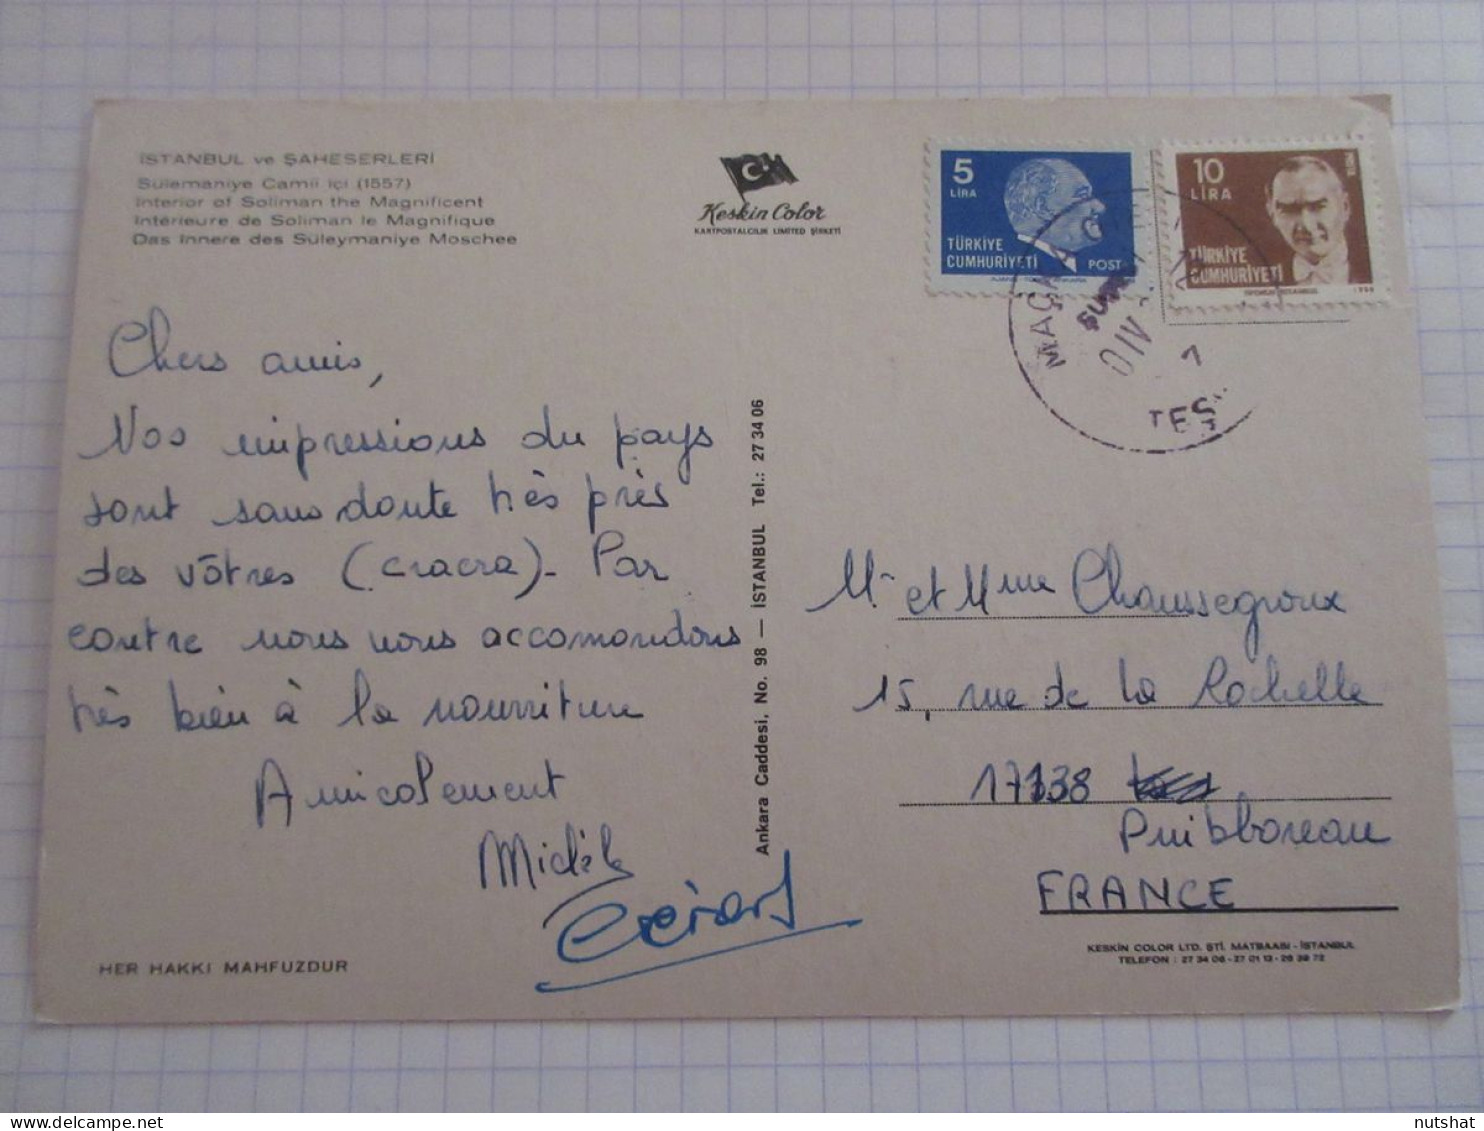 İSTANBUL ve ŞAHESERLERİ
Sülemaniye Camii içi (1557)
Interior of Soliman the Magnificent
Interieure de Soliman le Magnifique
Das Innere des Süleymaniye Moschee
Keskin Color
KARTPOSTALCILIK LIMITED ŞİRKETİ
5
LİRA
TÜRKİYE
CUMHURİYETİ
POST
10
LİRA
TÜRKİYE
CUMHURİYETİ
MAÇKA
TES
Chers amis,
Nos impressions du pays
sont sans doute très près
des vôtres (cracra). Par
contre nous nous accomondons
très bien à la nourriture
Amicalement
Michèle
Gérard
HER HAKKI MAHFUZDUR
Ankara Caddesi, No. 98 — İSTANBUL Tel.: 27 34 06
Mr et Mme Chaussegroux
15, rue de la Rochelle
17138
Puilboreau
FRANCE
KESKİN COLOR LTD. STİ. MATBAASI - İSTANBUL
TELEFON : 27 34 06 - 27 01 13 - 26 39 72
nutshat